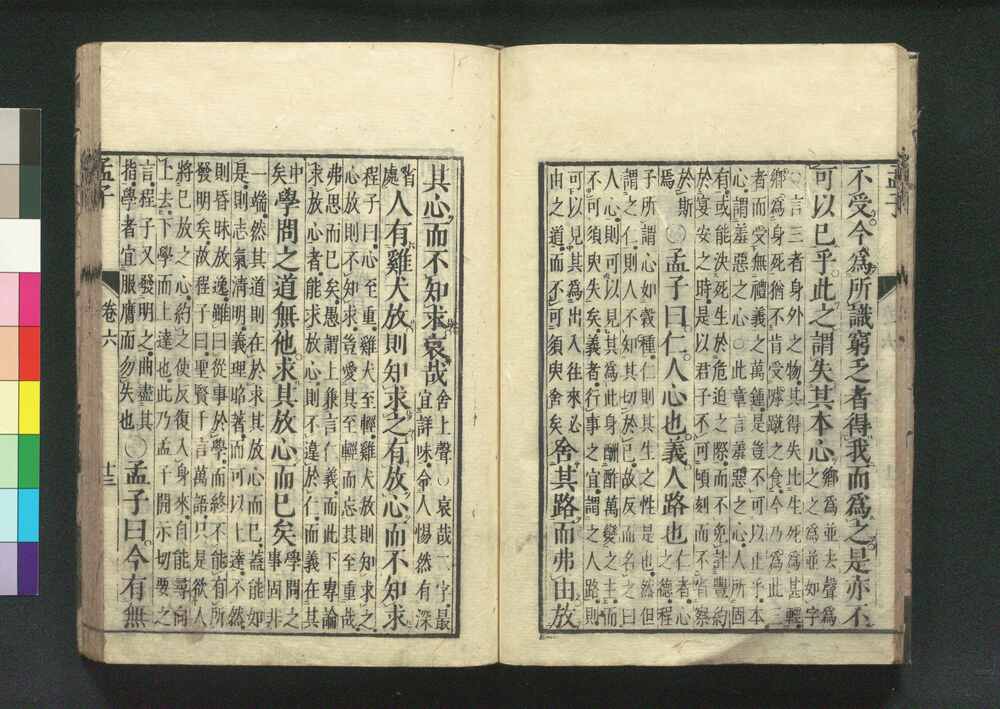 不受今爲所識窮乏者得我而爲之是亦不
可以已乎此之謂失其本心
鄉爲並去聲爲
之之爲並如字
○言三者身外之物其得失比生死爲甚輕
鄉爲身死猶不肯受嘑蹴之食今乃爲此三
者而受無禮義之萬鍾是豈不可以止乎本
心謂羞惡之心○此章言羞惡之心人所固
有或能決死生於危迫之際而不免計豐約
於宴安之時是以君子不可頃刻而不省察
於斯
焉
○孟子曰仁人心也義人路也
仁者心
之德程
子所謂心如穀種仁則其生之性是也然但
謂之仁則人不知其切於己故反而名之曰
人心則可以見其爲此身酬酢萬變之主而
不可須臾失矣義者行事之宜謂之人路則
可以見其爲出入往來必
由之道而不可須臾舍矣
舍其路而弗由放
其心而不知求哀哉
舍上聲○哀哉二字最
宜詳味令人惕然有深
省
處
人有雞犬放則知求之有放心而不知求
程子曰心至重雞犬至輕雞犬放則知求之
心放則不知求豈愛其至輕而忘其至重哉
弗思而已矣愚謂上兼言仁義而此下專論
求放心者能求放心則不違於仁而義在其
中
矣
學問之道無他求其放心而已矣
學問之
事固非
一端然其道則在於求其放心而已蓋能如
是則志氣清明義理昭著而可以上達不然
則昏昧放逸雖曰從事於學而終不能有所
發明矣故程子曰聖賢千言萬語只是欲人
將已放之心約之使反復入身來自能尋向
上去下學而上達也此乃孟子開示切要之
言程子又發明之曲盡其
指學者宜服膺而勿失也
○孟子曰今有無
孟子
卷六
十三